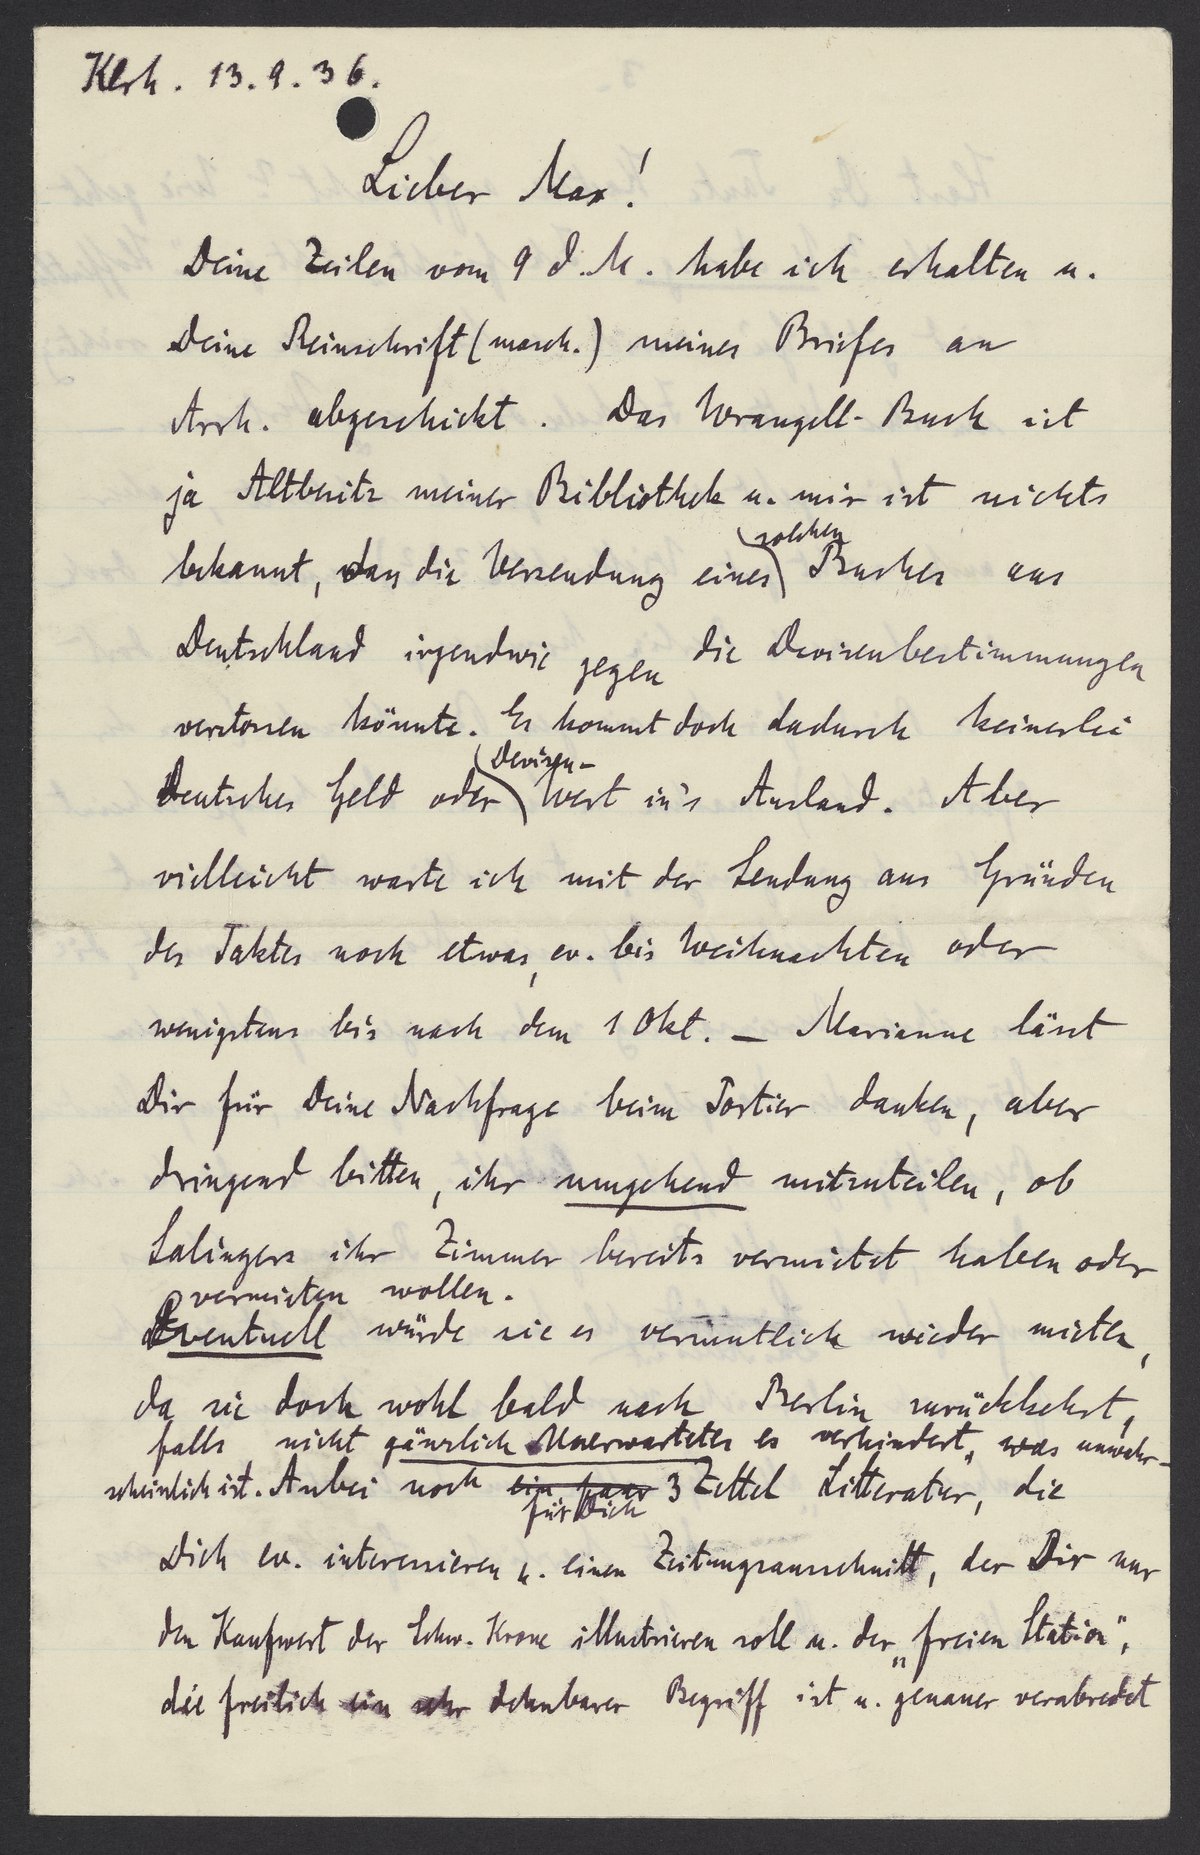 Klrh. 13.9.36.
Lieber Max!
Deine Zeilen vom 9 d.M. habe ich erhalten u.
Deine Reinschrift (masch.) meines Briefes an
Arrh. abgeschickt. Das Wrangell-Buch ist
ja Altbesitz meiner Bibliothek u. mir ist nichts
bekannt, dass die Versendung eines solchen Buches aus
Deutschland irgendwie gegen die Devisenbestimmungen
verstossen könnte. Es kommt doch dadurch keinerlei
Deutsches Geld oder Devisen-Wert in's Ausland. Aber
vielleicht warte ich mit der Sendung aus Gründen
des Taktes noch etwas, ev. bis Weihnachten oder
wenigstens bis nach dem 1 Okt. – Marianne lässt
Dir für Deine Nachfrage beim Portier danken, aber
dringend bitten, ihr umgehend mitzuteilen, ob
Salingers ihr Zimmer bereits vermietet haben oder
vermieten wollen.
Eventuell würde sie es vermutlich wieder mieten,
da sie doch wohl bald nach Berlin zurückkehrt,
falls nicht gänzlich Unerwartetes es verhindert, was unwahr-
scheinlich ist. Anbei noch ein paar 3 Zettel Litteratur, die
für Dich
Dich ev. interessieren u. einen Zeitungsausschnitt, der Dir nur
den Kaufwert der Schw. Krone illustrieren soll u. der „freien Station",
die freilich ein sehr dehnbarer Begriff ist u. genauer verabredet